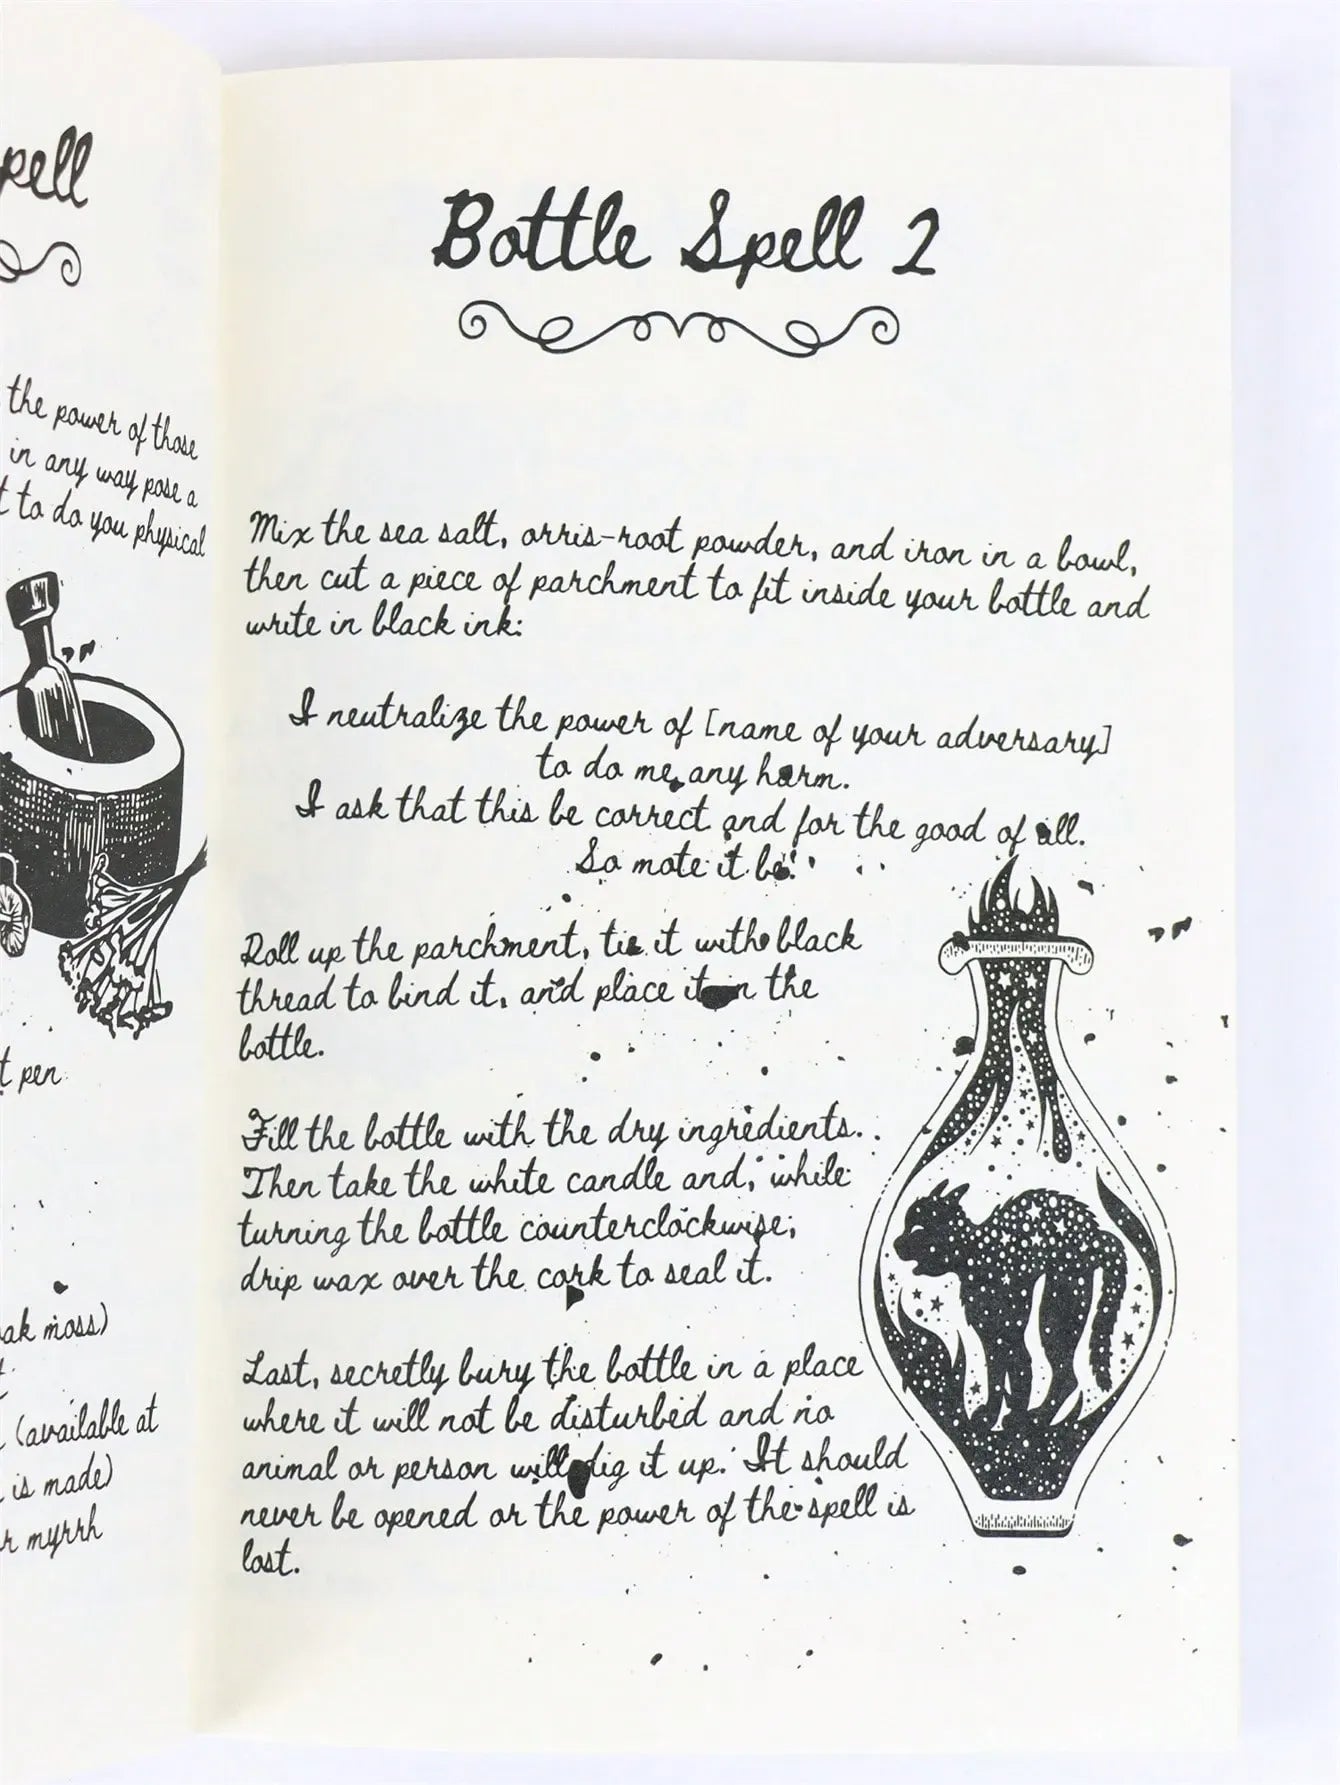 pell
the power of those
in any way pose a
to do you physical
pen
oak moss)
(available at
is made)
myrrh
Bottle Spell 2
Mix the sea salt, orris-root powder, and iron in a bowl,
then cut a piece of parchment to fit inside your bottle and
write in black ink:
I neutralize the power of [name of your adversary]
to do me any harm.
I ask that this be correct and for the good of all.
So mote it be!
Roll up the parchment, tie it with black
thread to bind it, and place it in the
bottle.
Fill the bottle with the dry ingredients.
Then take the white candle and, while
turning the bottle counterclockwise,
drip wax over the cork to seal it.
Last, secretly bury the bottle in a place
where it will not be disturbed and no
animal or person will dig it up. It should
never be opened or the power of the spell is
lost.